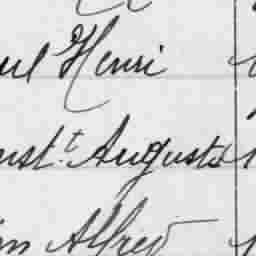 ul Henri
nst.t Auguste
Alfred